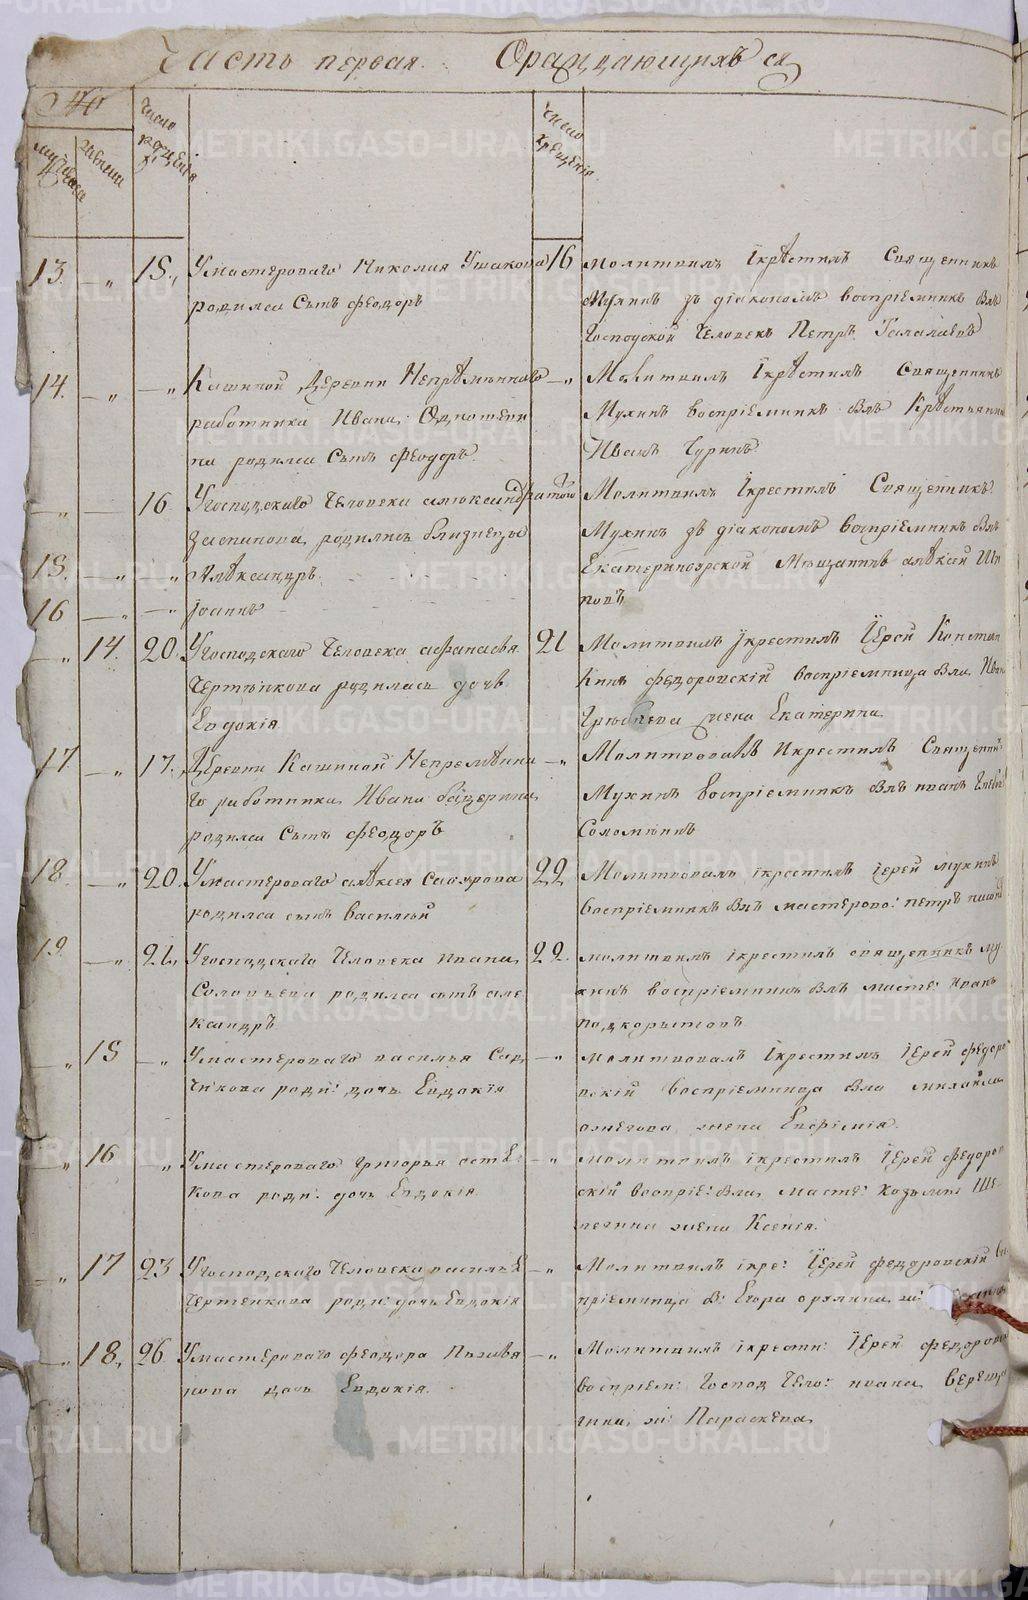 Часть первая. Ораждающихъ ся
№
мужеска
женска
число рождения
число крещения
13. „ 15., Умастероваго Николая Ушакова
родился Сынъ Феодоръ
16 Молитвилъ Iкрѣстилъ Священникъ
Мухинъ зъ дiакономъ воспрiемникъ Былъ
Господской Человекъ Петръ
14. — „ — „ Кашиной Деревни Непремѣннаго
работника Ивана
родился Сынъ Феодоръ.
— „ Молитвилъ Iкрѣстилъ Священникъ
Мухинъ воспрiемникъ Былъ Крѣстьянинъ
Иванъ Чуринъ
„ — 16. Угосподскаго Человека
родились близнецы
Молитвилъ Iкрестилъ Священникъ
Мухинъ зъ дiакономъ воспрiемникъ Былъ
15. — „ — „ Алѣксандръ
Екатеринбурской Мѣщанинъ алѣксѣй
16 — „ — „ Iоаннъ
„ 14. 20. Угосподскаго Человека афанасья
Чертѣнкова родилась дочь
Евдокiя
21 Молитвилъ Iкрестилъ Iерей
Федоровскiй воспрiемница Была
жена Екатерина
17 — „ 17., Деревни Кашиной Непремѣнна
го работника Ивана
родился Сынъ Феодоръ
— „ Молитвовалъ Икрестилъ Священни
Мухинъ воспрiемникъ Былъ иванъ
Соломеинъ
18. — „ 20. Умастероваго алѣксея
родился сынъ василий
22 Молитвовалъ iкрестилъ iерей мухинъ
воспрiемникъ Былъ мастерово: петръ
19. — „ 21., Угосподскаго Человека ивана
Соловьева родился сынъ але
ксандръ
22. молитвилъ iкрестилъ священникъ му
хинъ воспрiемникъ Былъ масте: иванъ
подкорытовъ
„ 15 — „ Умастероваго василья Сад
чикова роди: дочь Евдокiя
— „ молитвовалъ Iкрестилъ Iерей федоро
вскiй воспрiемница Была михайла
ожегова жена Евфимiя.
„ 16 „ Умастероваго григорья
кова роди: дочь Евдокiя
— „ молитвилъ iкрестилъ Iерей федоров
скiй воспрiе: Была масте: козьмы Ше
легина жена Ксения.
„ 17 23 Угосподскаго Человека василья
Чертенкова роди: дочь Евдокiя
— „ Молитвилъ iкре: Iерей федоровскiй вос
прiемница Б: Егора орлина ж:
„ 18. 26 Умастероваго феодора
нова дочь Евдокiя.
— „ Молитвилъ iкрести: Iерей федоровск
воспрiем: Господ Чело: ивана Вереща
гина ж: Параскева
METRIKI.GASO-URAL.RU